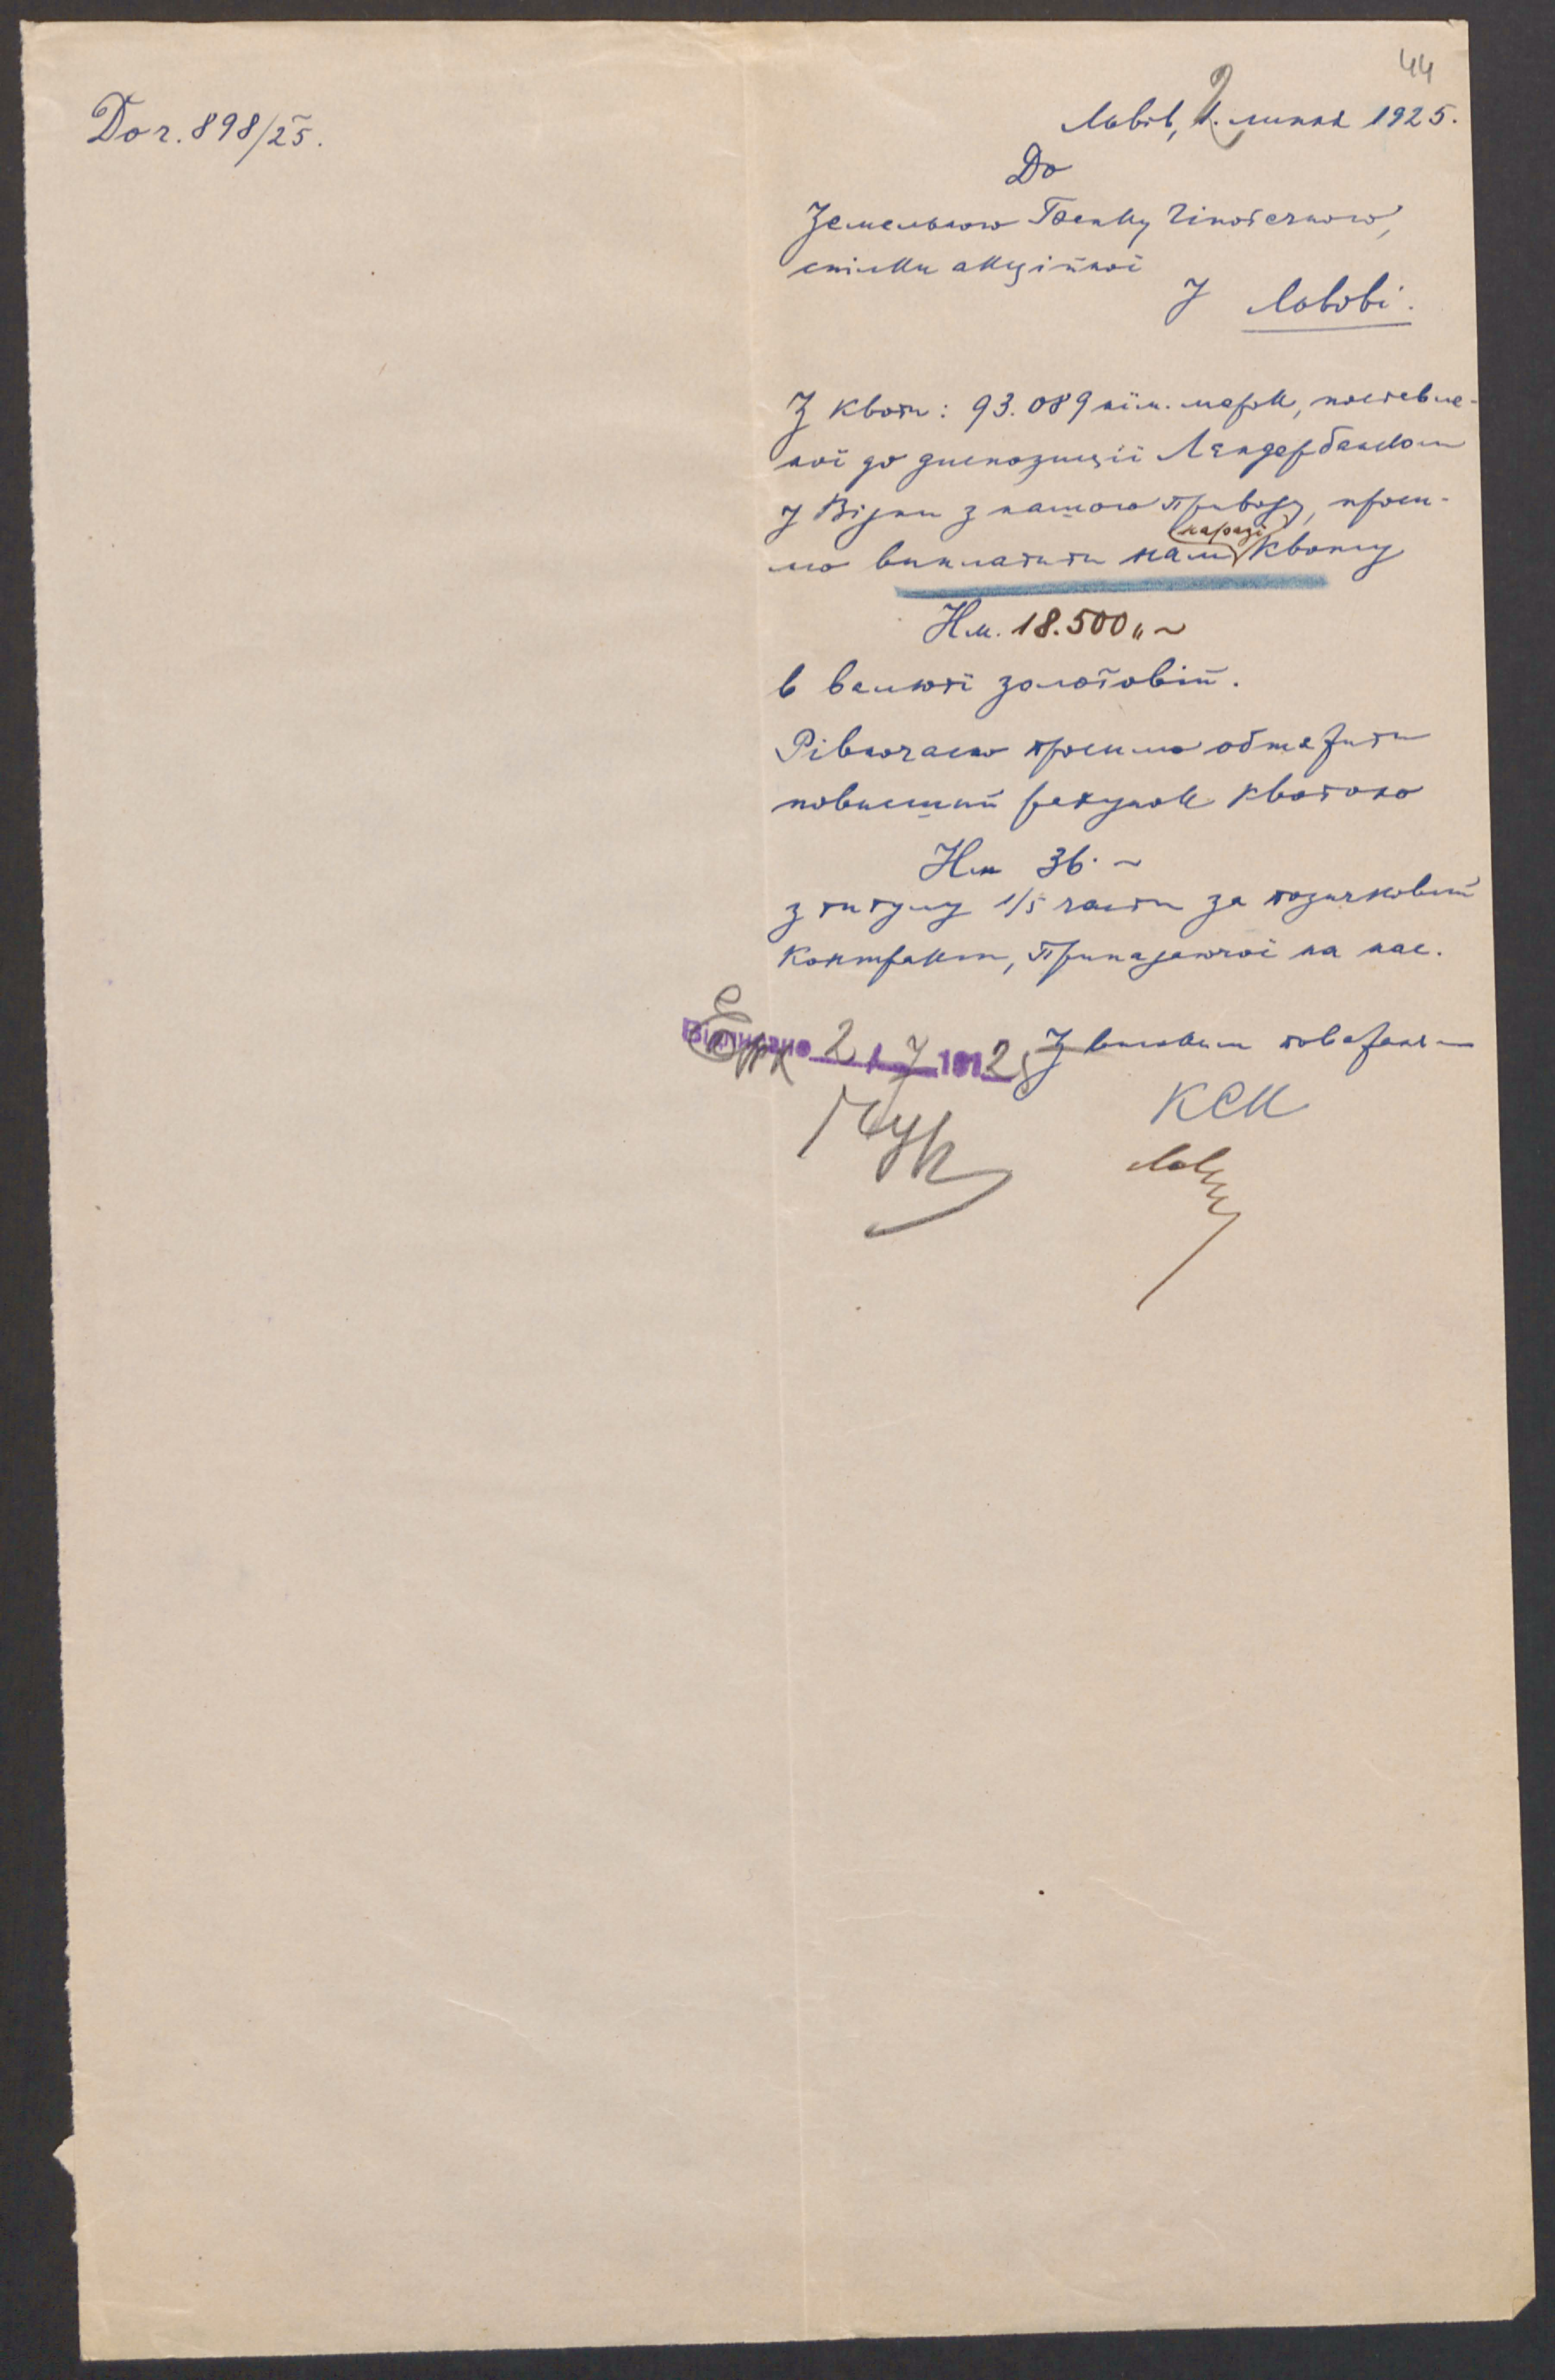 44
До ч. 898/25.
Львів, 2. липня 1925.
До
Земельного Банку Гіпотечного,
спілки акційної
у Львові.
З квоти: 93.089 нім. марк, поставле-
ної до диспозиції Лендербанком
у Відни з нашого приводу, проси-
мо виплатити нам наразі квоту
Нм. 18.500.~
в валюті золотовій.
Рівночасно просимо обтяжити
повисший рахунок квотою
Нм 36.~
з титулу 1/5 части за позичковий
контракт, припадаючої на нас.
З високим поважанєм
Відписано 2/7 1925
КСК